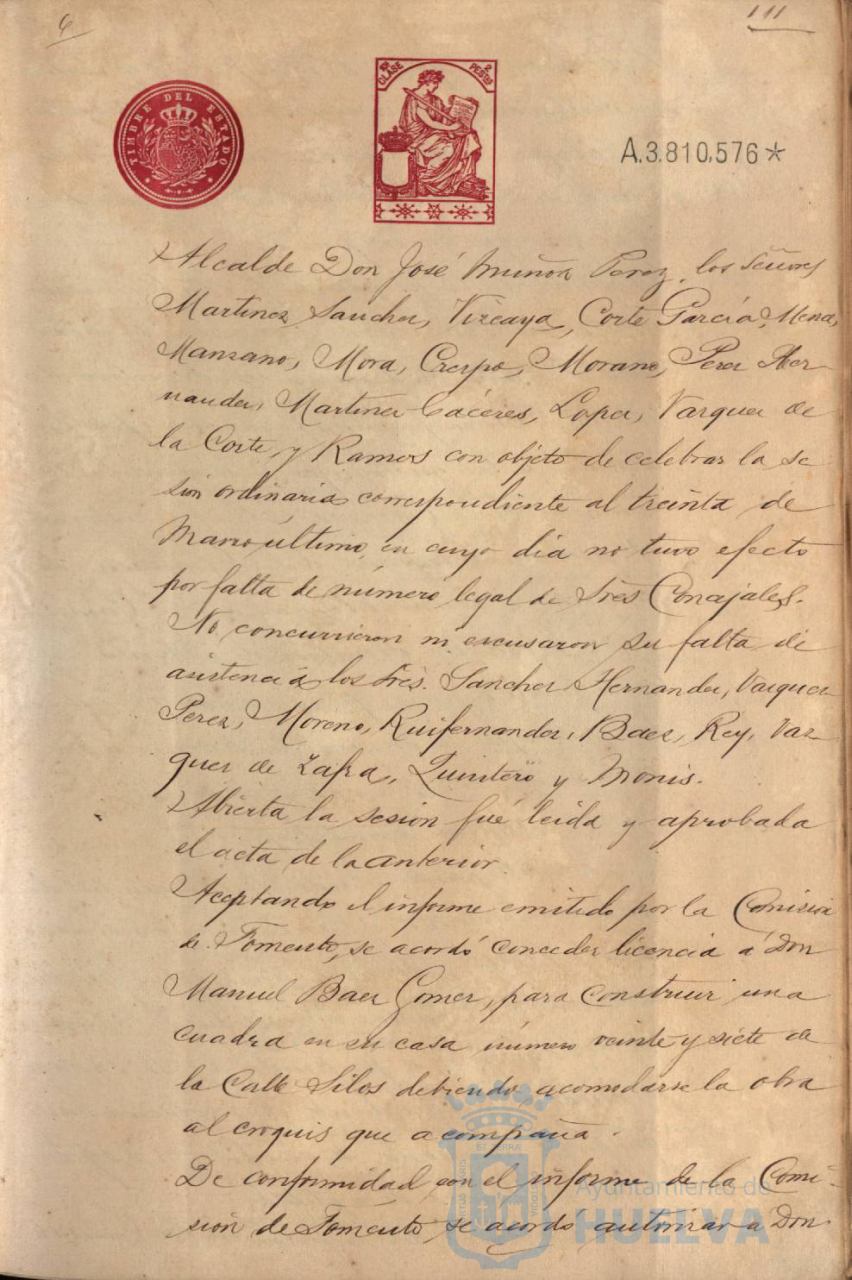 6
111
TIMBRE DEL ESTADO
10ª CLASE 2 PESTAS
A.3.810,576*
Alcalde Don José Muñoz Perez, los Señores
Martinez Sanchez, Vizcaya, Corte Garcia, Mena,
Manzano, Mora, Crespo, Morano, Perez Her-
nandez, Martinez Cáceres, Lopez, Vazquez de
la Corte, y Ramos con objeto de celebrar la se
sión ordinaria correspondiente al treinta de
Marzo último, en cuyo dia no tuvo efecto
por falta de número legal de Sres Concejales.
No concurrieron ni escusaron su falta de
asistencia los Sres. Sanchez Hernandez, Vazquez
Perez, Moreno, Ruifernandez, Baez, Rey, Vaz
quez de Zafra, Quintero y Monis.
Abierta la sesion fué leida y aprobada
el acta de la anterior.
Aceptando el informe emitido por la Comision
de Fomento, se acordó conceder licencia á Don
Manuel Baez Gomez, para construir una
cuadra en su casa número veinte y siete de
la Calle Silos debiendo acomodarse la obra
al croquis que acompaña.
De conformidad con el informe de la Comi-
sión de Fomento, se acordó autorizar a Don
Ayuntamiento de
HUELVA